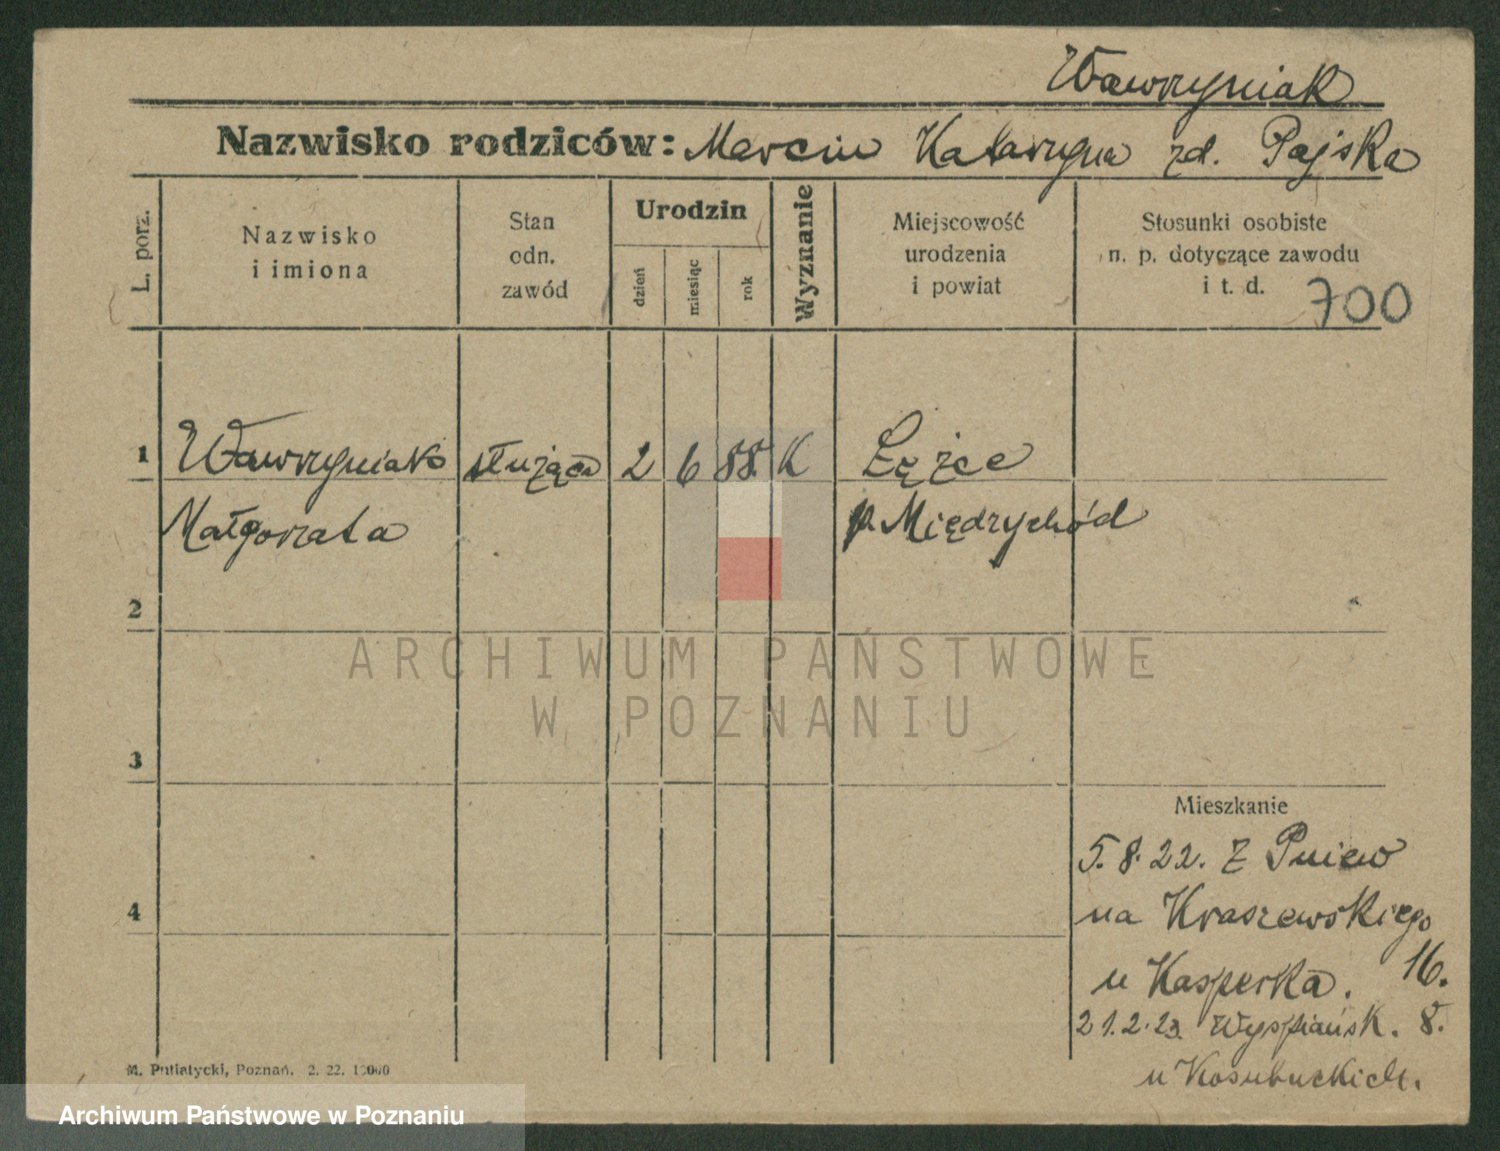 Wawrzyniak
Nazwisko rodziców: Marcin Katarzyna zd. Pajska
L. porz.
Nazwisko
i imiona
Stan
odn.
zawód
Urodzin
dzień
miesiąc
rok
Wyznanie
Miejscowość
urodzenia
i powiat
Stosunki osobiste
n. p. dotyczące zawodu
i t. d.
700
1 Wawrzyniak służąca 2 6 88. K Łężce
Małgorzata p. Międzychód
2
ARCHIWUM PAŃSTWOWE
W POZNANIU
3
Mieszkanie
5.8.22. z Pniew
4
na Kraszewskiego
16.
u Kasperka.
21.2.23. Wyspiańsk. 8.
u Kosubuckich.
M. Putiatycki, Poznań. 2. 22. 10000
Archiwum Państwowe w Poznaniu